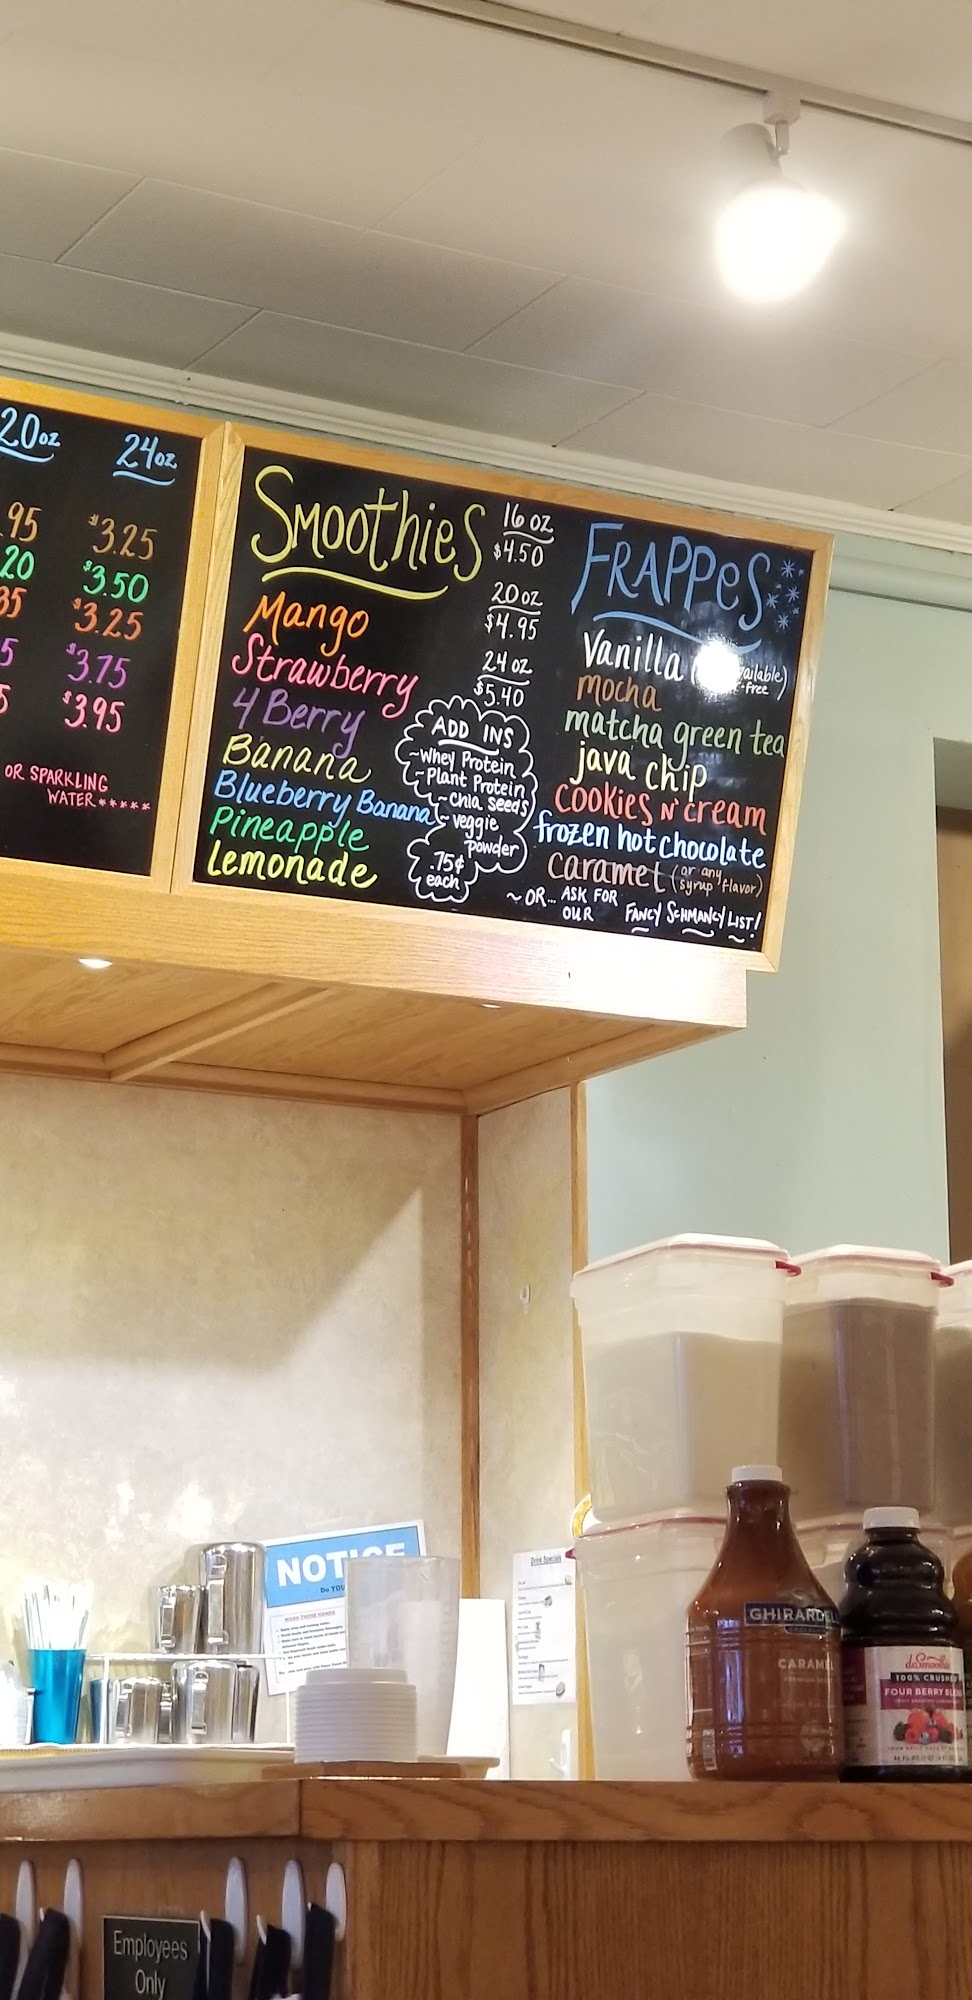 20oz 24oz
.95 $3.25
.20 $3.50
$3.25
$3.75
$3.95
OR SPARKLING
WATER*****
Smoothies
Mango
Strawberry
4 Berry
Banana
Blueberry Banana
Pineapple
Lemonade
16 oz
$4.50
20 oz
$4.95
24 oz
$5.40
ADD INS
~Whey Protein
~Plant Protein
~chia seeds
~veggie
powder
.75¢
each
FRAPPes
Vanilla
mocha
matcha green tea
java chip
cookies n' cream
frozen hot chocolate
caramel (or any syrup flavor)
~OR... ASK FOR
OUR FANCY SCHMANCY LIST!
NOTICE
Do YOU
WASH THOSE HANDS
Drink Specials
GHIRARDELLI
CARAMEL
100% CRUSHED
FOUR BERRY BLEND
Employees
Only